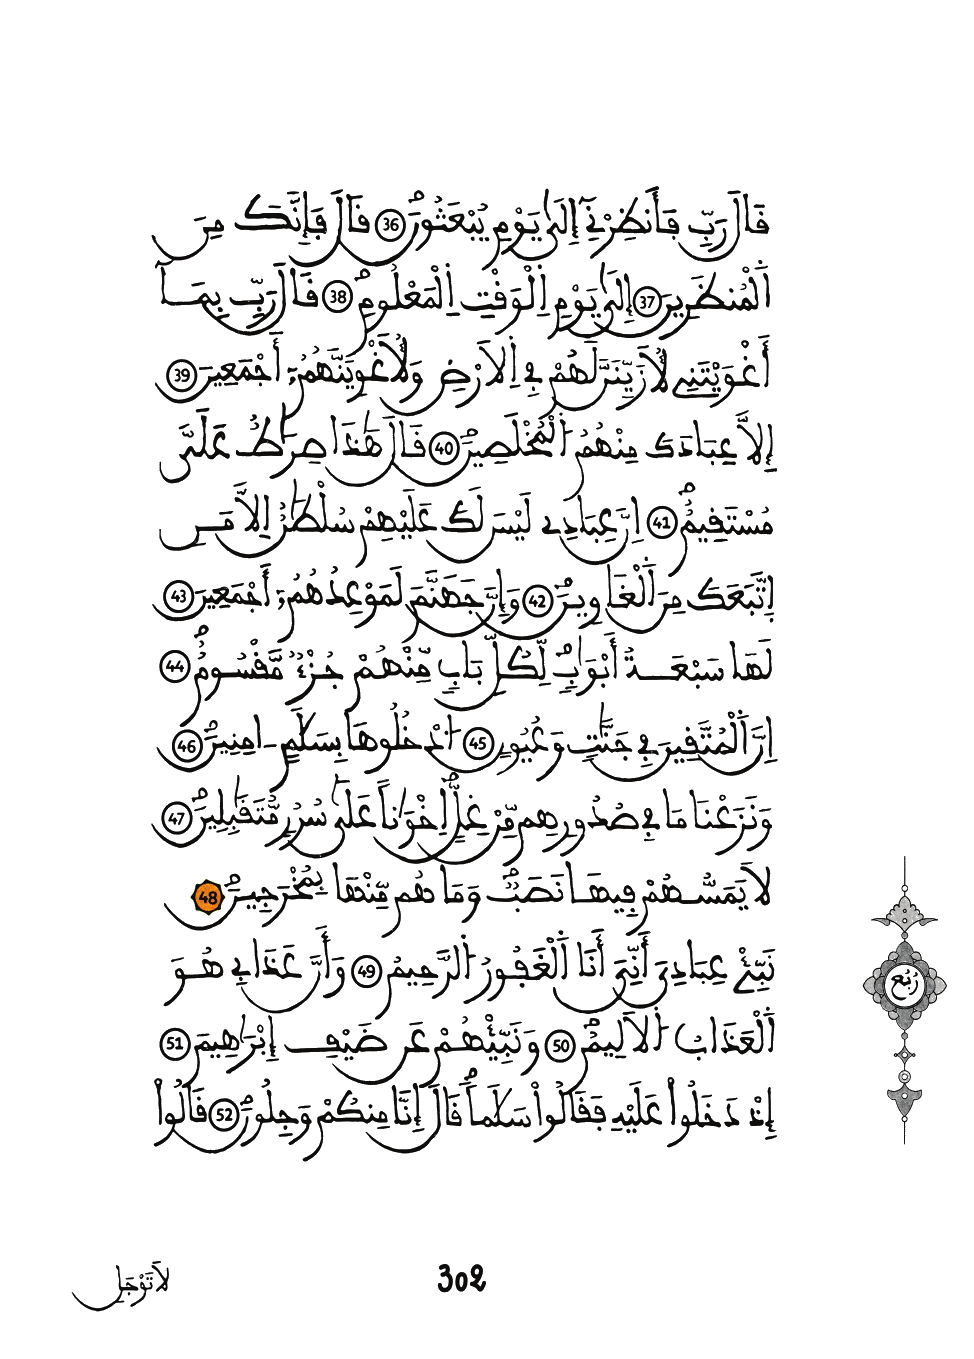 قَالَ رَبِّ فَأَنظِرْنِےٓ إِلَىٰ يَوْمِ يُبْعَثُونَۖ 36 قَالَ فَإِنَّكَ مِنَ
اَ۬لْمُنظَرِينَ 37 إِلَىٰ يَوْمِ اِ۬لْوَقْتِ اِ۬لْمَعْلُومِۖ 38 قَالَ رَبِّ بِمَآ
أَغْوَيْتَنِے لَأُزَيِّنَنَّ لَهُمْ فِے اِ۬لَارْضِ وَلَأُغْوِيَنَّهُمُۥٓ أَجْمَعِينَ 39
إِلَّا عِبَادَكَ مِنْهُمُ اُ۬لْمُخْلَصِينَۖ 40 قَالَ هَٰذَا صِرَٰطٌ عَلَىَّ
مُسْتَقِيمٌۖ 41 إِنَّ عِبَادِے لَيْسَ لَكَ عَلَيْهِمْ سُلْطَٰنٌ اِلَّا مَنِ
اِ۪تَّبَعَكَ مِنَ اَ۬لْغَاوِينَۖ 42 وَإِنَّ جَهَنَّمَ لَمَوْعِدُهُمُۥٓ أَجْمَعِينَ 43
لَهَا سَبْعَةُ أَبْوَٰبٍۖ لِّكُلِّ بَابٍ مِّنْهُمْ جُزْءٌ مَّقْسُومٌۖ 44
إِنَّ اَ۬لْمُتَّقِينَ فِے جَنَّٰتٍ وَعُيُونٍ 45 اُ۟دْخُلُوهَا بِسَلَٰمٍ ـ امِنِينَۖ 46
وَنَزَعْنَا مَا فِے صُدُورِهِم مِّنْ غِلٍّۖ اِخْوَٰناً عَلَىٰ سُرُرٍ مُّتَقَٰبِلِينَۖ 47
لَا يَمَسُّهُمْ فِيهَا نَصَبٌۖ وَمَا هُم مِّنْهَا بِمُخْرَجِينَۖ 48
نَبِّۓْ عِبَادِيَ أَنِّيَ أَنَا اَ۬لْغَفُورُ اُ۬لرَّحِيمُ 49 وَأَنَّ عَذَابِے هُوَ
اَ۬لْعَذَابُ اُ۬لَالِيمُۖ 50 وَنَبِّئْهُمْ عَن ضَيْفِ إِبْرَٰهِيمَ 51
إِذْ دَخَلُواْ عَلَيْهِ فَقَالُواْ سَلَٰماًۖ قَالَ إِنَّا مِنكُمْ وَجِلُونَۖ 52 قَالُواْ
رُبُع
302
لَا تَوْجَلِ